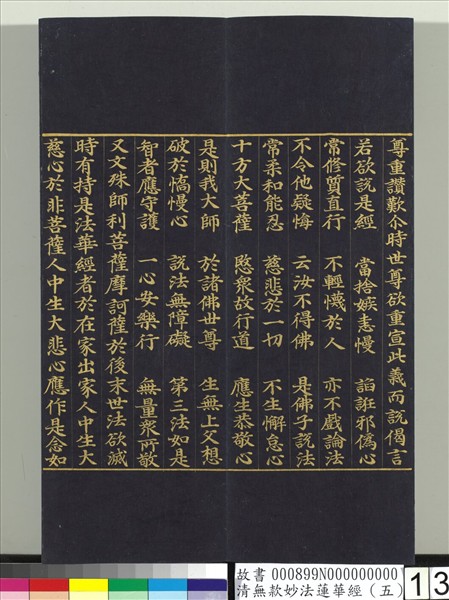 尊重讚歎尒時世尊欲重宣此義而說偈言
若欲說是經 當捨嫉恚慢 諂誑邪偽心
常修質直行 不輕懱於人 亦不戲論法
不令他疑悔 云汝不得佛 是佛子說法
常柔和能忍 慈悲於一切 不生懈怠心
十方大菩薩 愍衆故行道 應生恭敬心
是則我大師 於諸佛世尊 生無上父想
破於憍慢心 說法無障礙 第三法如是
智者應守護 一心安樂行 無量衆所敬
又文殊師利菩薩摩訶薩於後末世法欲滅
時有持是法華經者於在家出家人中生大
慈心於非菩薩人中生大悲心應作是念如
故書 000899N000000000
清無款妙法蓮華經(五)
13